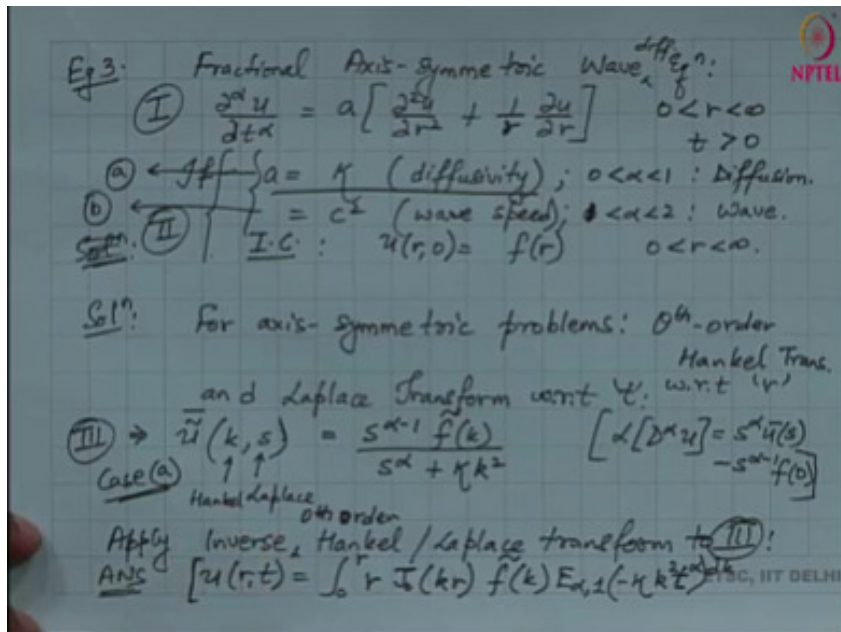 Eg 3. Fractional Axis-symmetric Wave, diff Eqn:
NPTEL
I ∂^α u / ∂t^α = a [ ∂²u/∂r² + 1/r ∂u/∂r ] 0 < r < ∞
t > 0
a ← If { a = K (diffusivity); 0 < α < 1 : Diffusion.
b ← = c² (wave speed); 1 < α < 2 : Wave.
Soln: II I.C.: u(r,0) = f(r) 0 < r < ∞.
Soln: For axis-symmetric problems: 0th-order
Hankel Trans.
and Laplace Transform w.r.t 't'. w.r.t 'r'
III → ũ̄(k, s) = s^{α-1} f̃(k) / (s^α + K k²) [ L[D^α u] = s^α ū(s)
- s^{α-1} f(0) ]
Case (a) ↑ ↑
Hankel Laplace
0th order
Apply Inverse, Hankel / Laplace transform to III:
ANS [ u(r,t) = ∫₀^r r J₀(kr) f̃(k) E_{α,1}(-K k² t^α) dk
SC, IIT DELHI